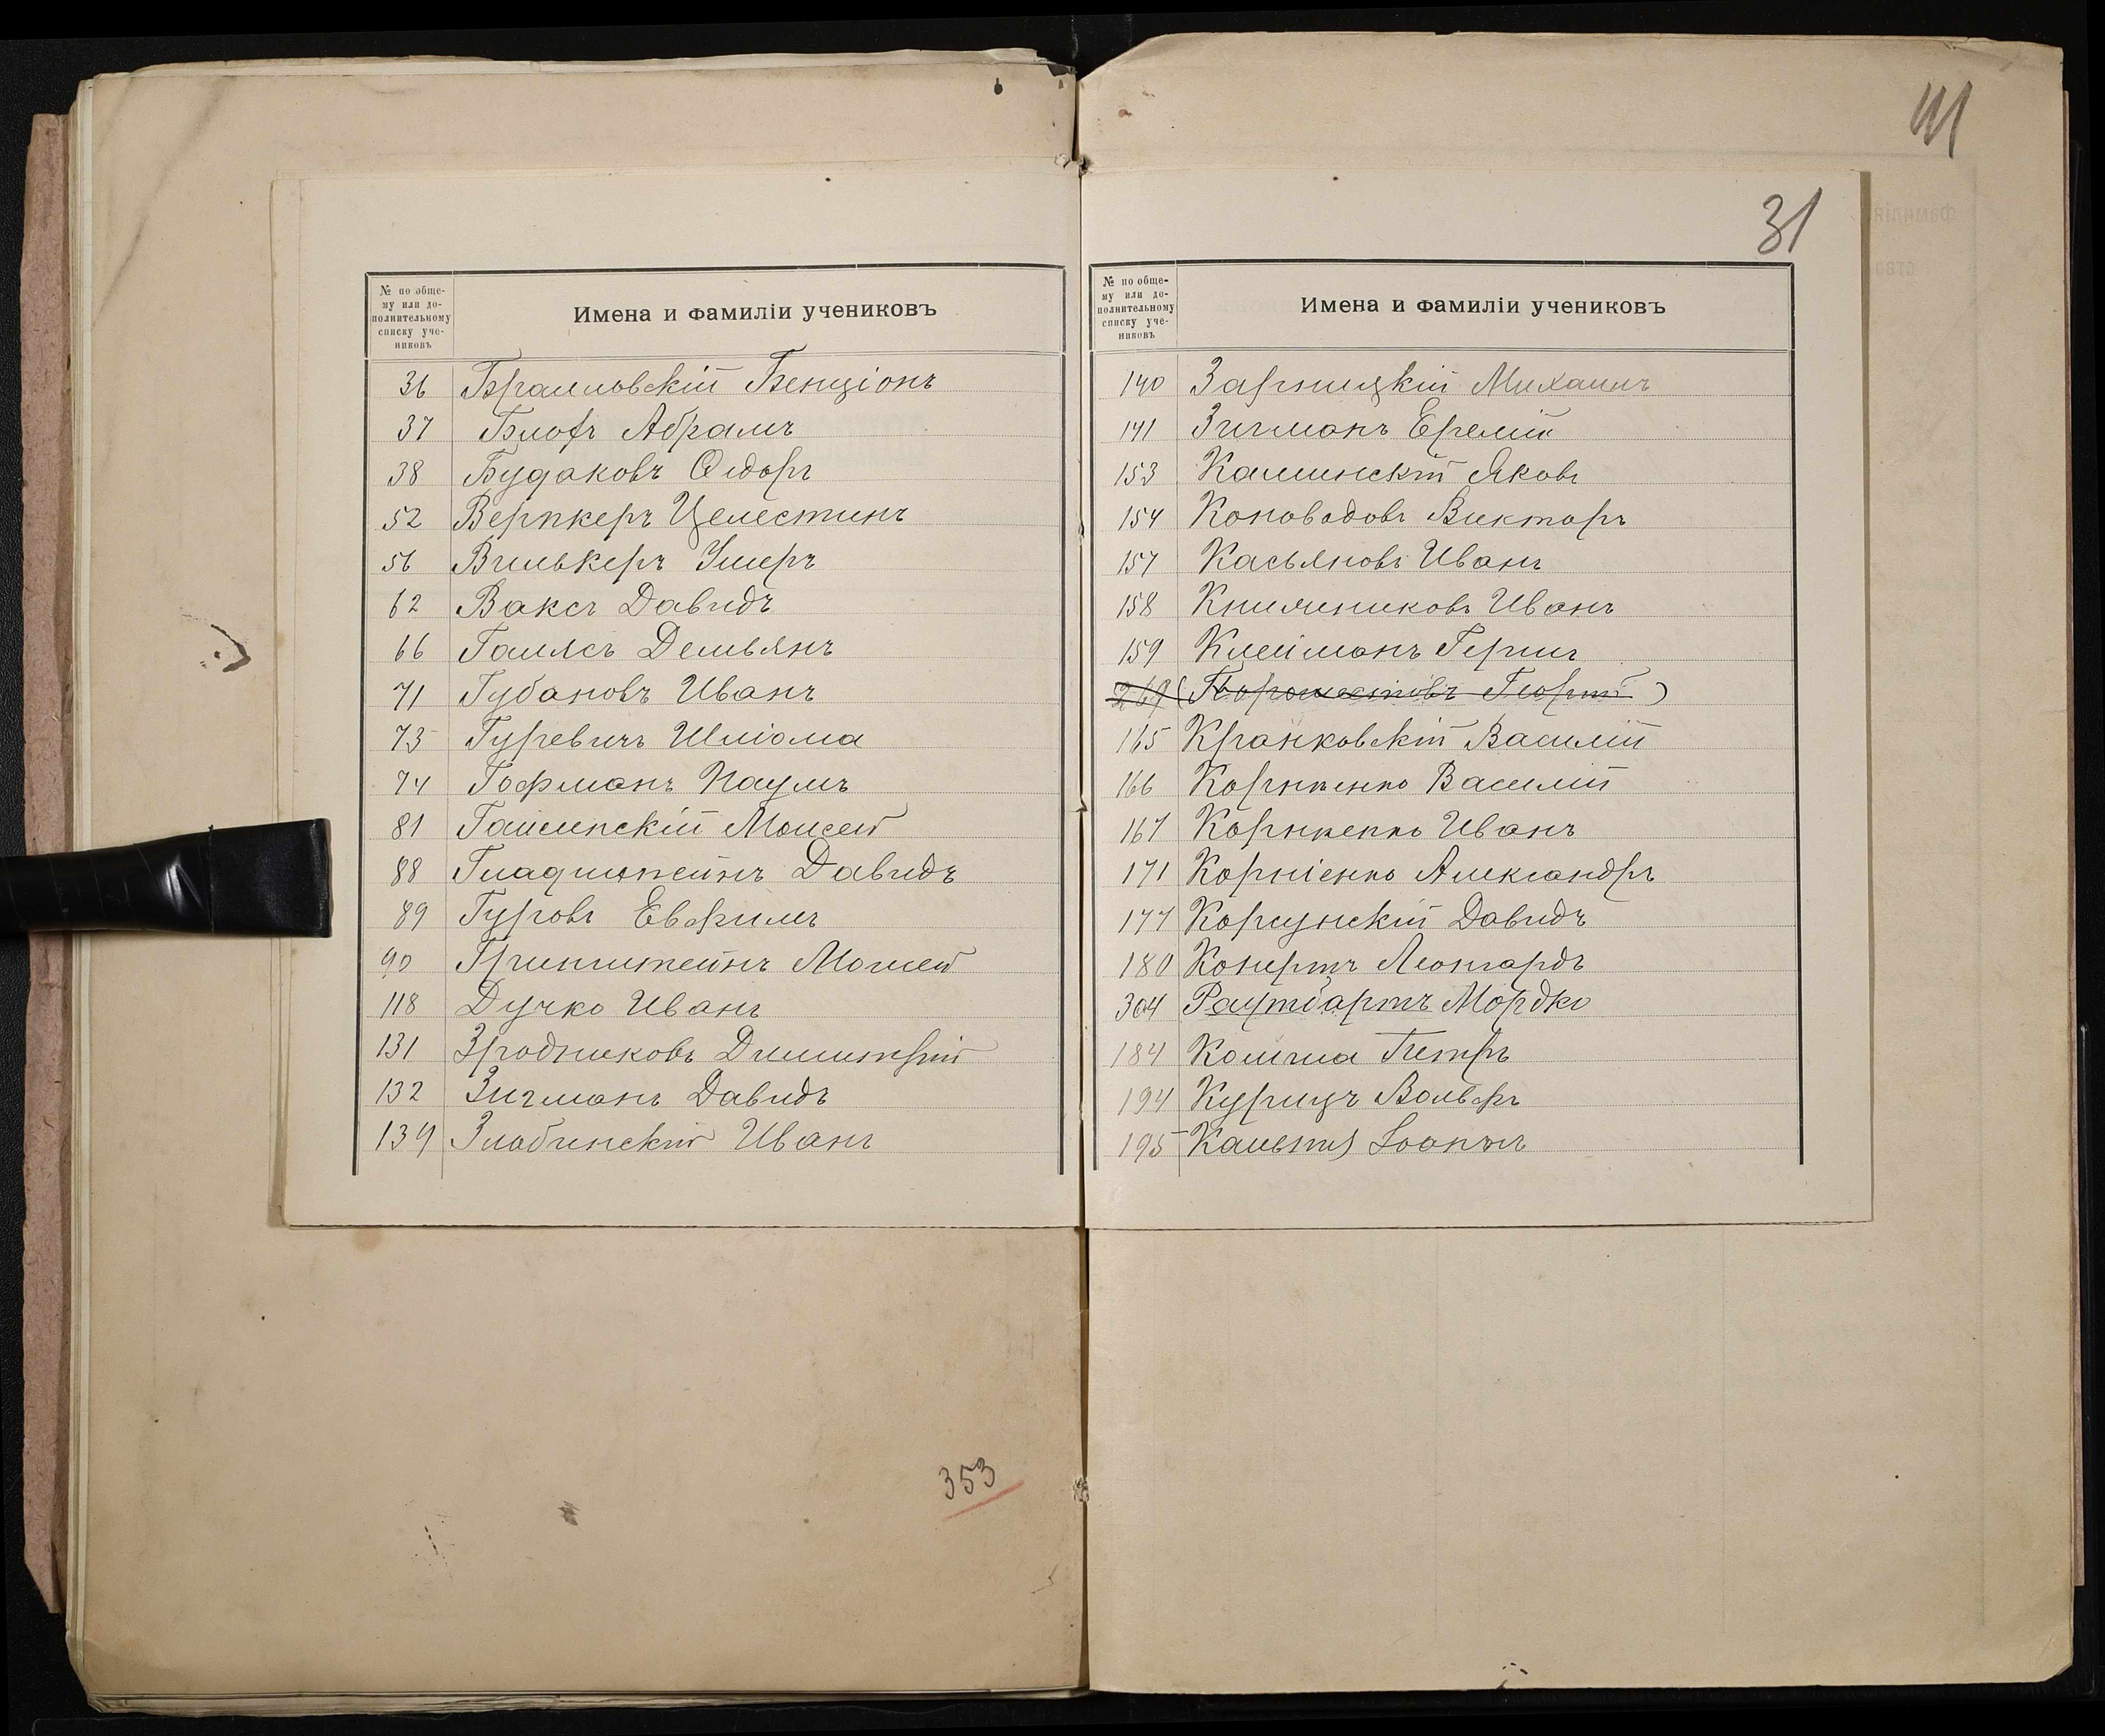 № по обще-
му или до-
полнительному
списку уче-
никовъ
Имена и фамиліи учениковъ
36 Браиловскій Бенціонъ
37 Блофъ Абрамъ
38 Будаковъ Ѳедоръ
52 Верпкеръ Целестинъ
56 Вилькеръ Умеръ
62 Ваксъ Давидъ
66 Галясъ Демьянъ
71 Губановъ Иванъ
73 Гуревичъ Шліома
74 Гофманъ Наумъ
81 Гайсинскій Моисей
88 Гладштейнъ Давидъ
89 Гуровъ Евфимъ
90 Гринштейнъ Моисей
118 Дучко Иванъ
131 Зродниковъ Димитрій
132 Зигманъ Давидъ
139 Злобинскій Иванъ
41
31
№ по обще-
му или до-
полнительному
списку уче-
никовъ
Имена и фамиліи учениковъ
140 Зарницкій Михаилъ
141 Зигманъ Еремій
153 Калинскій Яковъ
154 Коноводовъ Викторъ
157 Касьяновъ Иванъ
158 Иванъ
159 Клейманъ Гершъ
269 Георгій)
165 Кранковскій Василій
166 Корниенко Василій
167 Корниенко Иванъ
171 Корніенко Александръ
177 Корсунскій Давидъ
180 Конертъ Леонгардъ
304 Раутбартъ Мордко
184 Петръ
194 Курицъ Вольфъ
195 Іоаннъ
353